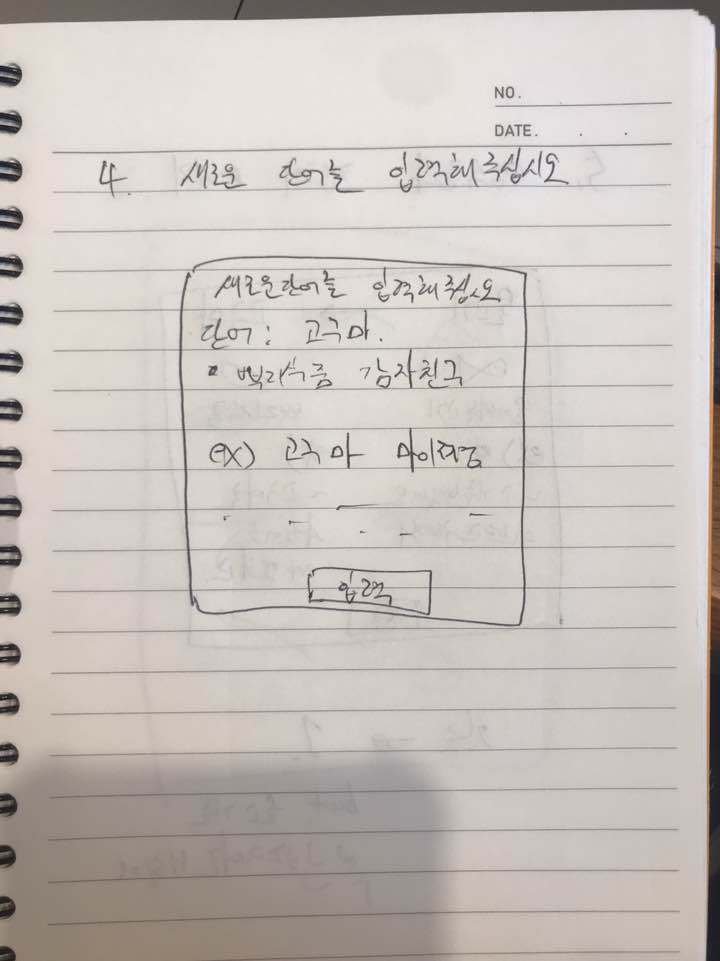 NO.
DATE. . .
4. 새로운 단어를 입력해 주십시오
새로운단어를 입력해주십시오
단어: 고구마.
• 뿌리식품 감자친구
ex) 고구마
입력